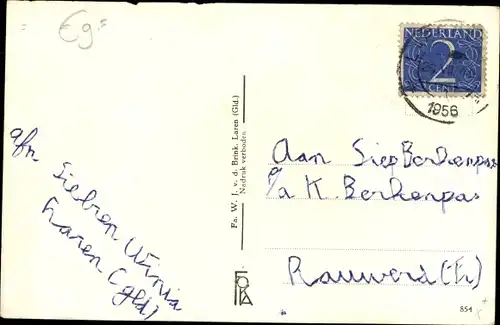 €g=
NEDERLAND
2
CENT
1956
afn.
Siebren Winia
Laren (gld)
Fa. W. J. v. d. Brink, Laren (Gld.)
Nadruk verboden.
Aan Siep Berkenpas
p/a K. Berkenpas
Rauwerd (Fr)
FOKA
854